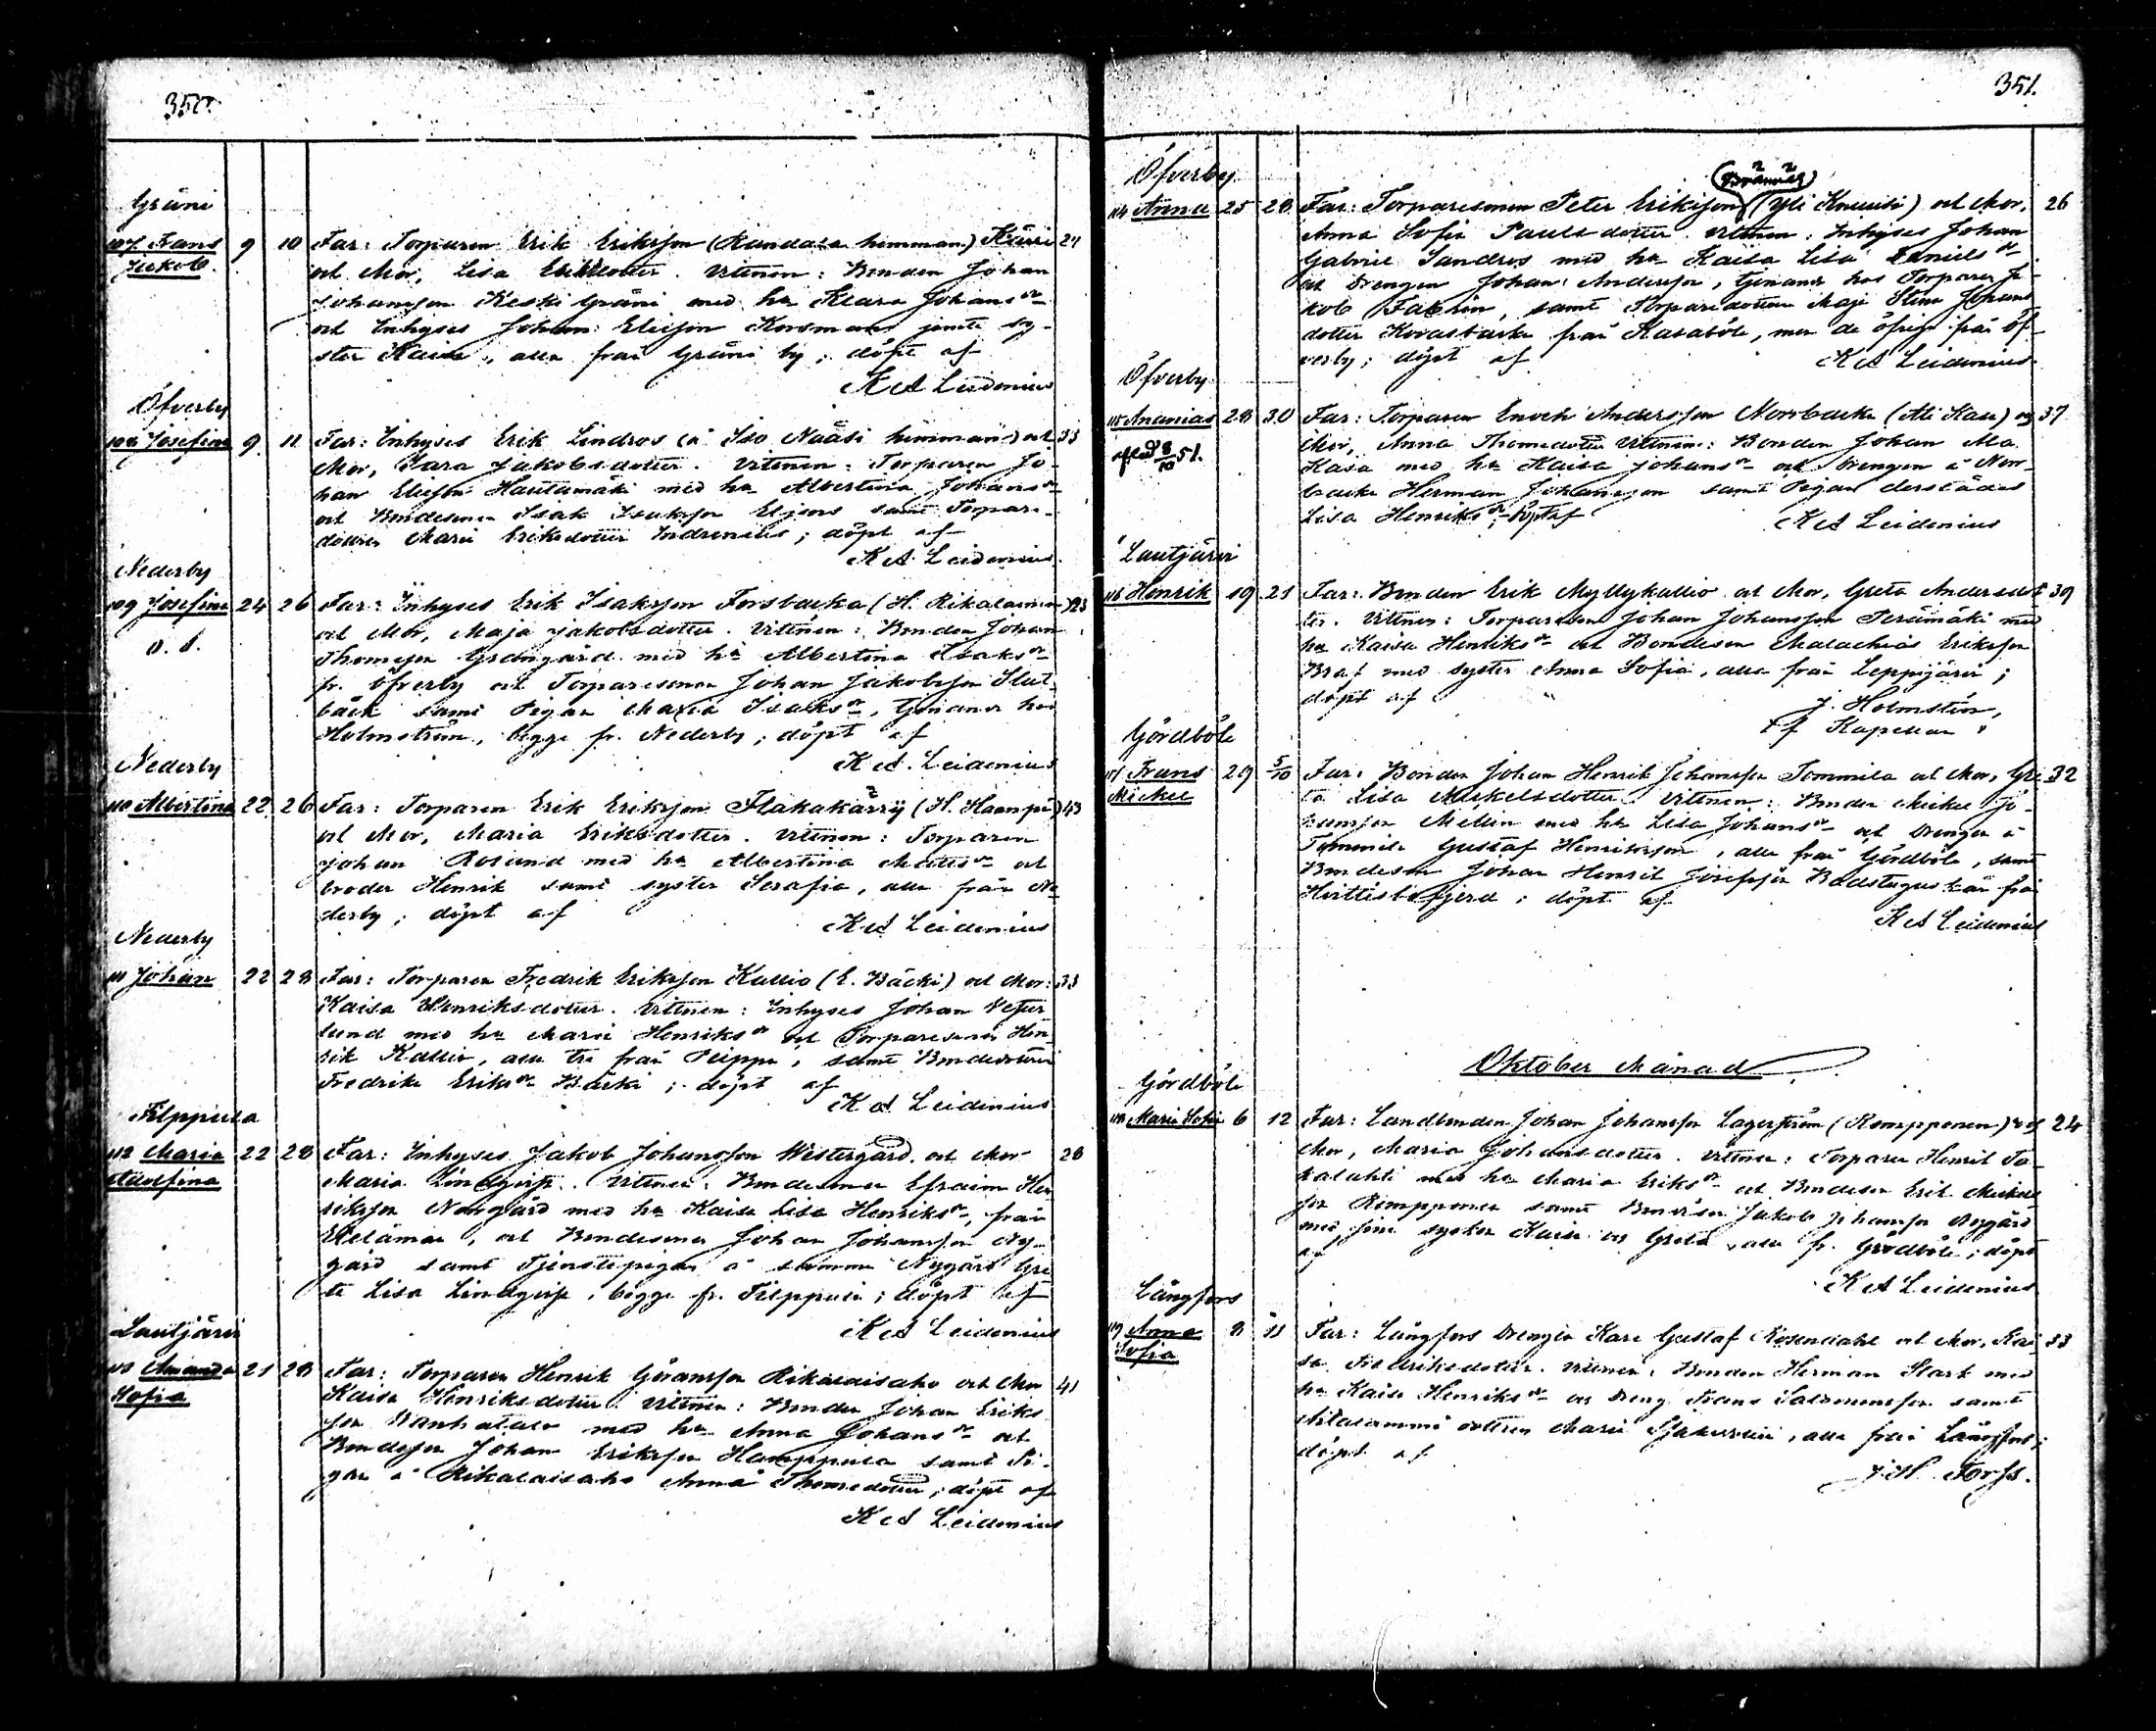 350.
Gräni
107 Frans 9 10 Far: Torparen Erik Eriksson (Randala hemman) Kärri 24
Jakob. och Mor, Lisa Eriksdotter. Vittnen: Bonden Johan
Johansson Keski Gräni med h:u Klara Johansdr
och Inhyses Johan Eliesson Korsman jemte sy-
ster Kaisa, alla från Gräni by; döpt af
K A Leidenius
Öfverby
108 Josefina 9. 11 Far: Inhyses Erik Lindros (å Iso Naäsi hemman) och 33
Mor, Sara Jakobsdotter. Vittnen: Torparen Jo-
han Eliesson Hautamäki med h:u Albertina Johansdr
och Bondesonen Isak Isaksson Eljens samt Torpare-
dottren Maria Eriksdotter; döpt af
K A Leidenius
Nederby
109 Josefina 24 26 Far: Inhyses Erik Isaksson Forsbacka (H. Rikalainen) 23
o. ä. och Mor, Maja Jakobsdotter. Vittnen: Bonden Johan
Thomasson Grangård med h:u Albertina Isaksdr
fr. Öfverby och Torparesonen Johan Jakobsson Slät-
back samt Pigan Maria Isaksdr, tjenande hos
Holmström, bägge fr. Nederby; döpt af
K A Leidenius
Nederby
110 Albertina 22 26 Far: Torparen Erik Eriksson Flakakärry (H. Haanpä) 43
och Mor, Maria Eriksdotter. Vittnen: Torparen
Johan Roslund med h:u Albertina Mattsdr och
broder Henrik samt syster Serafia, alla från Ne-
derby; döpt af
K A Leidenius
Nederby
111 Johan 22 28 Far: Torparen Fredrik Eriksson Kallio (E. Bäcki) och Mor: 33
Kaisa Henriksdotter. Vittnen: Inhyses Johan Vester
lund med h:u Maria Henriksdr och Torparesonen Hen-
rik Kallio, alla tre från Peippu, samt Bondedottren
Fredrika Eriksdr Bäcki; döpt af
K A Leidenius
Filppula
112 Maria 22 28 Far: Inhyses Jakob Johansson Westergård och Mor 28
Adolfina Maria Lindqvist. Vittnen: Bondesonen Efraim Hen
riksson Norrgård med h:u Kaisa Lisa Henriksdr, från
och Bondesonen Johan Johansson Ny-
gård samt Tjenstepigan å samma Nygård Gre
ta Lisa Lindqvist, bägge fr. Filppula; döpt af
K A Leidenius
Lautjärvi
113 Amanda 21 28 Far: Torparen Henrik Göransson Rikalaisaho och Mor 41
Sofia Kaisa Henriksdotter. Vittnen: Bonden Johan Eriks
son Wanhatalo med h:u Anna Johansdr och
Bondeson Johan Eriksson Hamppula samt Pi-
gan å Rikalaisaho Anna Thomasdotter; döpt af
K A Leidenius
351.
Öfverby
(Brännas)
114 Anna 25 28 Far: Torparesonen Peter Eriksson (Yli Knuuti) och Mor, 26
Anna Sofia Paulsdotter. Vittnen: Inhyses Johan
Gabriel Sandros med h:u Kaisa Lisa Danielsdr
och Drengen Johan Andersson, tjenande hos Torparen Ja-
kob Fallin, samt Torparedottren Maja Stina Johans
dotter Kovasbacka från Kasaböle, men de öfriga från Öf-
verby; döpt af
K A Leidenius
Öfverby
115 Ananias 28 30 Far: Torparen Enoch Andersson Norrbacka (Ali Kasa) och 37
afled 8/10 51. Mor, Anna Thomasdotter Vittnen: Bonden Johan Ala
Kasa med h:u Kaisa Johansdr och Drengen å Norr-
backa Herman Johansson samt Pigan derstädes
Lisa Henriksdr; döpt af
K A Leidenius
Lautjärvi
116 Henrik 19 21 Far: Bonden Erik Myllykallio och Mor, Greta Andersdot- 39
ter. Vittnen: Torparesonen Johan Johansson Perämäki med
h:u Kaisa Henriksdr och Bondeson Malachias Eriksson
Braf med syster Anna Sofia, alla från Leppijärvi;
döpt af
J. Holmstén,
t f Kapellan
Gördböle
117 Frans 29 5/10 Far: Bonden Johan Henrik Johansson Tommila och Mor, Gre 32
Mickel ta Lisa Mickelsdotter Vittnen: Bonden Mickel Jo-
hansson Mellin med h:u Lisa Johansdr och Drengen å
Tommila Gustaf Henriksson, alla från Gördböle, samt
Bondeson Johan Henrik Josefsson Badstuguskär från
Hirttisbofjerd; döpt af
K A Leidenius
Oktober Månad
Gördböle
118 Maria Sofia 6 12 Far: Landbonden Johan Johansson Lagerström (Remponen) och 24
Mor, Maria Johansdotter. Vittnen: Torparen Henrik To-
kalahti med h:u Maria Eriksdr och Bondeson Erik Mickels
son Rempponen samt Bondeson Jakob Johansson Nygård
med sina syskon Kaisa och Greta, alla fr. Gördböle; döpt
af
K A Leidenius
Långfors
119 Anna 8 11 Far: Långfors Drengen Karl Gustaf Rosendahl och Mor, Kai 33
Sofia sa Fredriksdotter. Vittnen: Bonden Herman Stark med
h:u Kaisa Henriksdr och Dreng Frans Salomonsson samt
dottren Maria, alla från Långfors;
döpt af
J. H. Forss.